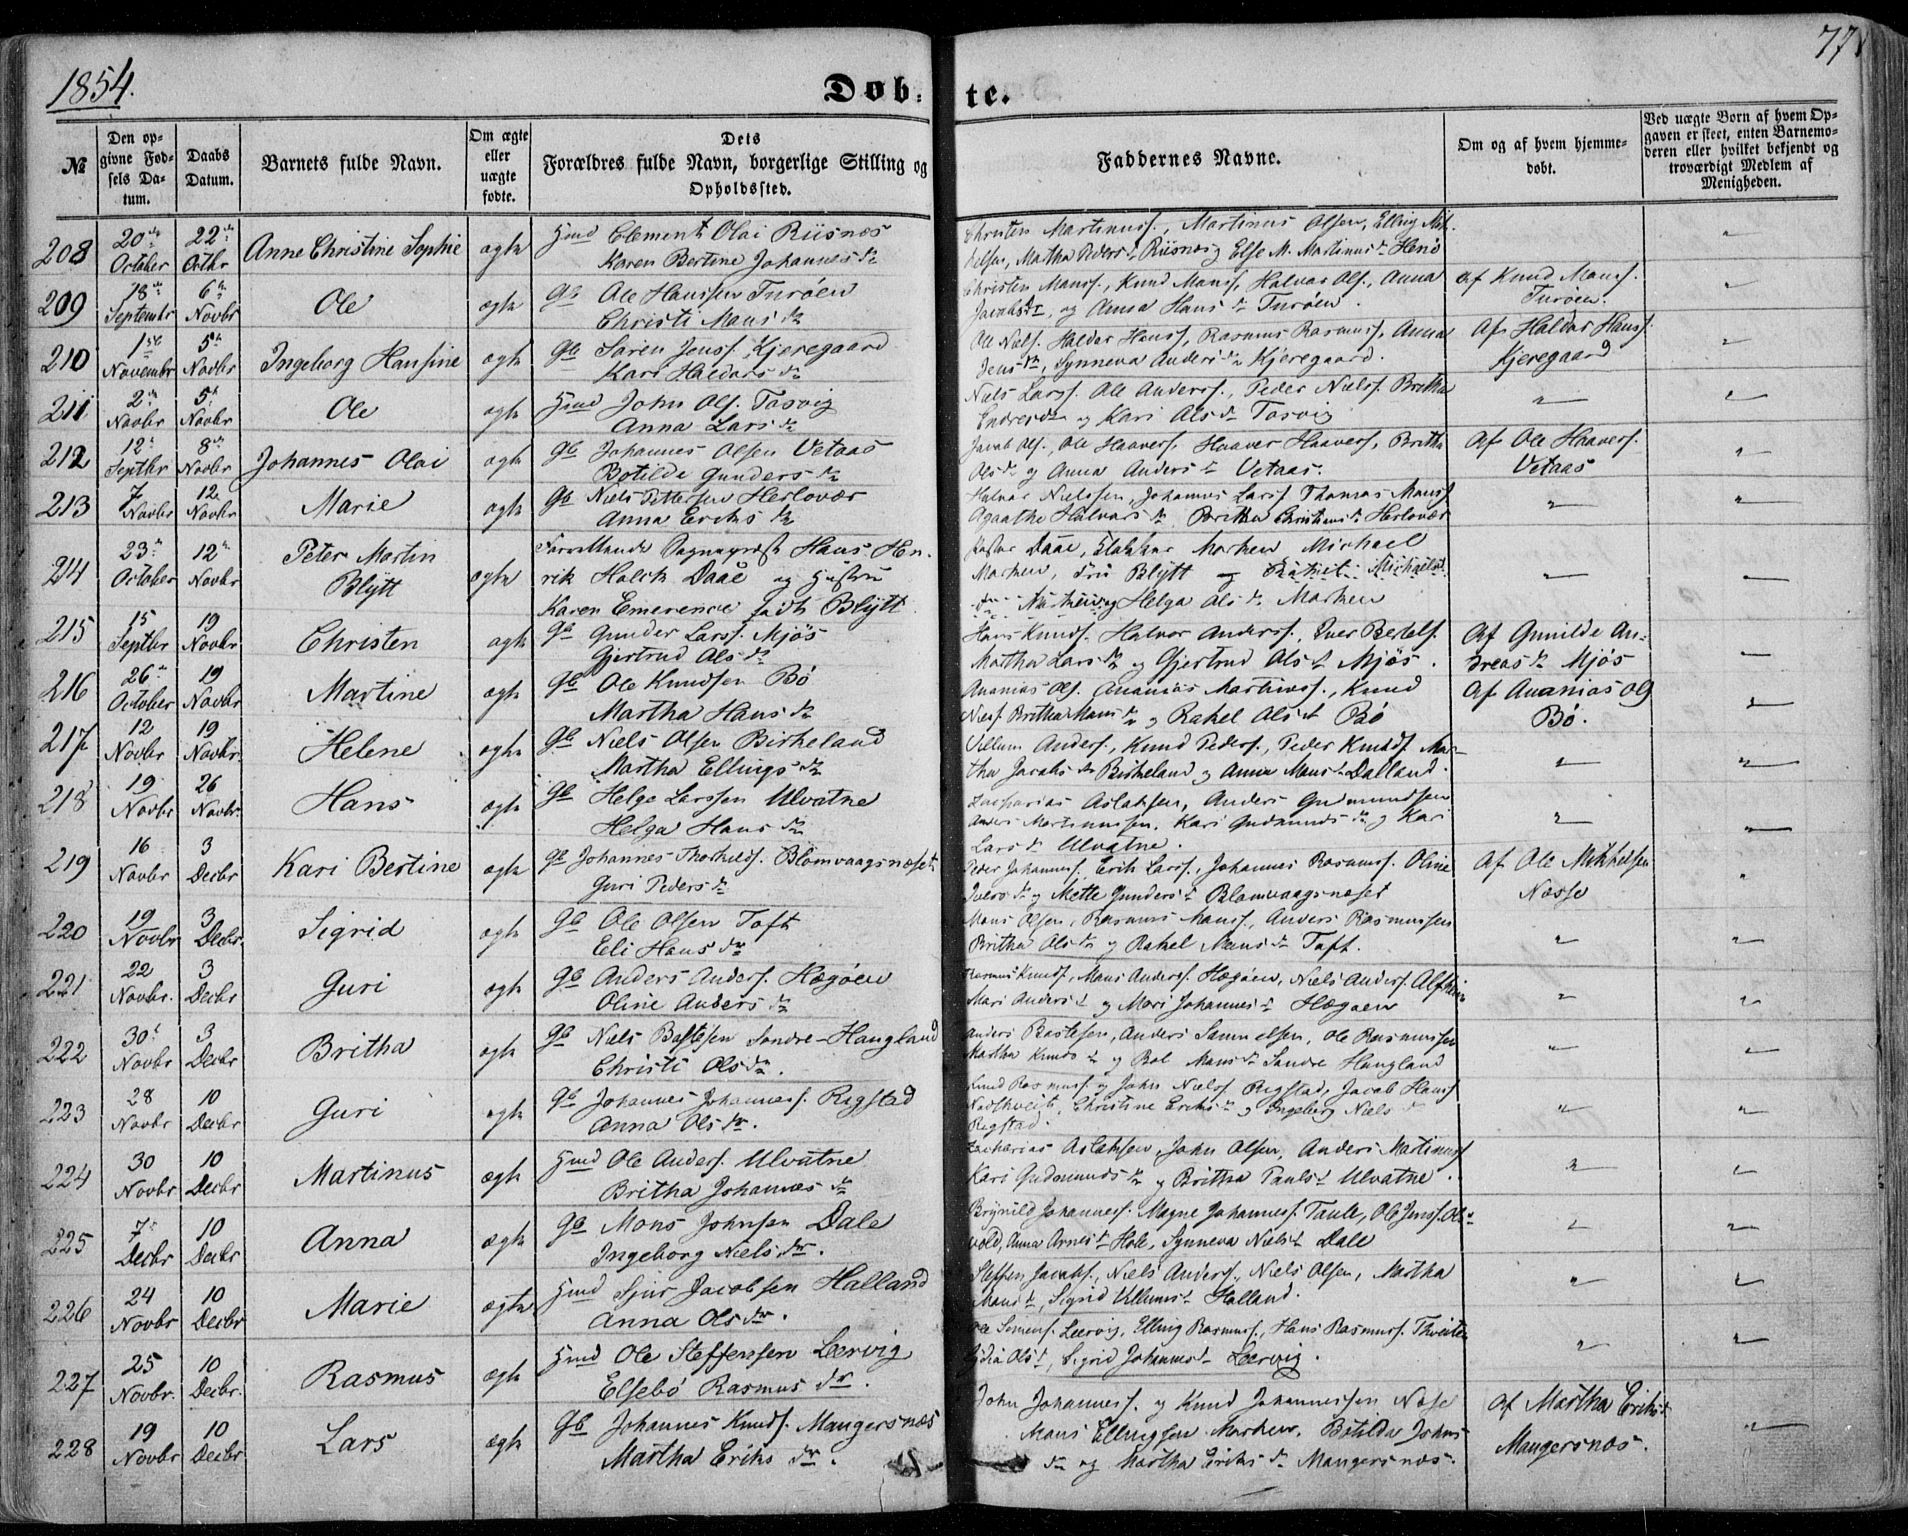 1854.
Døb-te.
77
№
Den op-
givne Fød-
sels Da-
tum.
Daabs
Datum.
Barnets fulde Navn.
Om ægte
eller
uægte
fødte.
Dets
Forældres fulde Navn, borgerlige Stilling og
Opholdssted.
Faddernes Navne.
Om og af hvem hjemme-
døbt.
Ved uægte Børn af hvem Op-
gaven er skeet, enten Barnemo-
deren eller hvilket bekjendt og
troværdigt Medlem af
Menigheden.
208 20de October 22de Octbr Anne Christine Sophie ægte Hmd Clement Olai Riisnæs
Karen Bertine Johannes dr
Christen Martinuss., Martinus Olsen, Elling Mik-
kelsen, Martha Peders dr Riisnæs og Else M. Martinus dr Henø
209 18de Septembr 6te Novbr Ole ægte Gb Ole Hanssen Turøen
Christi Mons dr
Christen Monss., Knud Monss, Halvor Ols., Anna
Jacobsdr og Anna Hans dr Turøen.
af Knud Monss.
Turøen.
210 1ste Novembr 5te Novbr Ingeborg Hansine ægte Gb Søren Jenss. Kjeregaard
Kari Haldors dr
Ole Niels. Haldor Hanss, Rasmus Rasmuss, Anna
Jens dr, Synneva Anders dr Kjeregaard.
Af Haldor Hanss.
Kjeregaard
211 2den Novbr 5te Novbr Ole ægte Hmd John Ols. Tosvig
Anna Lars dr
Niels Larss. Ole Anderss., Peder Nielss. Britha
Endresdr og Kari Ols dr Tosvig
212 12te Septbr 8de Novbr Johannes Olai ægte Gb Johannes Olsen Vetaas
Botilde Gunders dr
Jacob Ols. Ole Haavers., Haaver Haavers., Britha
Ols dr og Anna Anders dr Vetaas.
Af Ole Haavers.
Vetaas
213 7 Novbr 12te Novbr Marie ægte Gb Niels Pettersen Herlovær
Anna Eriks dr
Halvor Nielssen, Johannes Larss. Thomas Monss
Agaathe Halvors dr Britha Christens dr Herlovær
214 23de October 12te Novbr Peter Martin
Blÿtt
ægte Forrettende Sognepræst Hans Hen-
rik Holck Daae og Hustru
Karen Emerence født Blÿtt.
Pastor Daae, Klokker Marken Michael
Marken, Fru Blÿtt og Michaels
og Helga Ols dr Marken
215 15 Septbr 19 Novbr Christen ægte Gb Gunder Larss. Mjøs
Gjertrud Ols dr
Hans Knuds. Halvor Anderss., Iver Bertels.
Martha Lars dr og Gjertrud Ols dr Mjøs.
Af Gunilde An-
dreas dr Mjøs
216 26de October 19 Novbr Martine ægte Gb Ole Knudsen Bø
Martha Hans dr
Ananias Ols. Ananias Martinuss., Knud
Nielss. Britha Mons dr og Rakel Ols dr Bø
Af Ananias Ols
Bø.
217 12 Novbr 19 Novbr. Helene ægte Gb Niels Olsen Birkeland
Martha Ellings dr
Villum Anders., Knud Peders., Peder Knuds. Mar-
tha Jacobs dr Birkeland og Anna Mons dr Dalland.
218 19 Novbr 26 Novbr. Hans ægte Gb Helge Larssen Ulvatne
Helga Hans dr
Zacharias Aslaksen, Anders Gudmundsen
Anders Martinussen, Kari Gudmunds dr og Kari
Lars dr Ulvatne.
219 16 Novbr 3 Decbr Kari Bertine ægte Gb Johannes Thorkilds. Blomvaagsnæset
Guri Peders dr
Peder Johanness, Erik Larss., Johannes Rasmuss. Oline
Ivers dr og Mette Gunders dr Blomvaagsnæset
Af Ole Mikkelsen
Næsse
220 19 Novbr 3 Decbr. Sigrid ægte Gb Ole Olsen Toft
Eli Hans dr
Mons Olsen, Rasmus Monss, Anders Rasmussen
Britha Ols dr og Rakel Mons dr Toft.
221 22 Novbr. 3 Decbr Guri ægte Gb Anders Anders. Hægøen
Oline Anders dr
Rasmus Knuds., Mons Anders. Hægøen, Niels Anders. Alfheim
Mari Anders dr og Mari Johannes dr Hægøen
222 30te Novbr 3 Decbr Britha ægte Gb Niels Bastesen Søndre-Haugland
Christi Ols dr.
Anders Bastesen, Anders Samuelsen, Ole Rasmussen
Martha Knuds dr og Rol Mons dr Søndre Haugland
223 28 Novbr 10 Decbr Guri ægte Gb Johannes Johanness. Rigstad
Anna Ols dr.
Knud Rasmuss. og John Nielss Rigstad, Jacob Hanss
Nødtveidt, Christine Eriks dr og Ingeborg Niels dr
Rigstad.
224 30 Novbr 10 Decbr Martinus ægte Hmd Ole Anders. Ulvatne
Britha Johannes dr
Zacharias Aslaksen, John Olsen, Anders Martinuss
Kari Gudmunds dr og Britha Pauls dr Ulvatne.
225 7de Decbr 10 Decbr Anna ægte Gb Mons Johnsen Dale
Ingeborg Niels dr.
Brynild Johanness. Magne Johanness. Taule, Ole Jenss. Ols-
vold, Anna Arnes dr Hole, Synneva Niels dr Dale
226 24 Novbr 10 Decbr Marie ægte Hmd Sjur Jacobsen Halland
Anna Ols dr.
Steffen Jacobs., Niels Anders., Niels Olsen, Martha
Mons dr, Sigrid Villums dr Halland.
227 25 Novbr. 10 Decbr. Rasmus ægte Hmd Ole Steffensen Leervig
Elsebø Rasmus dr.
Ole Simens. Leervig, Elling Rasmuss., Hans Rasmuss. Thveiten
Lydia Ols dr, Sigrid Johannes dr Leervig.
228 19 Novbr 10 Decbr Lars ægte Gb Johannes Knuds. Mangersnæs
Martha Eriks dr.
John Johanness. og Knud Johannessen Nøse
Mons Ellingsen Marken, Botilda Johns
dr og Martha Eriks dr Mangersnæs.
af Martha Eriks dr
Mangersnæs.